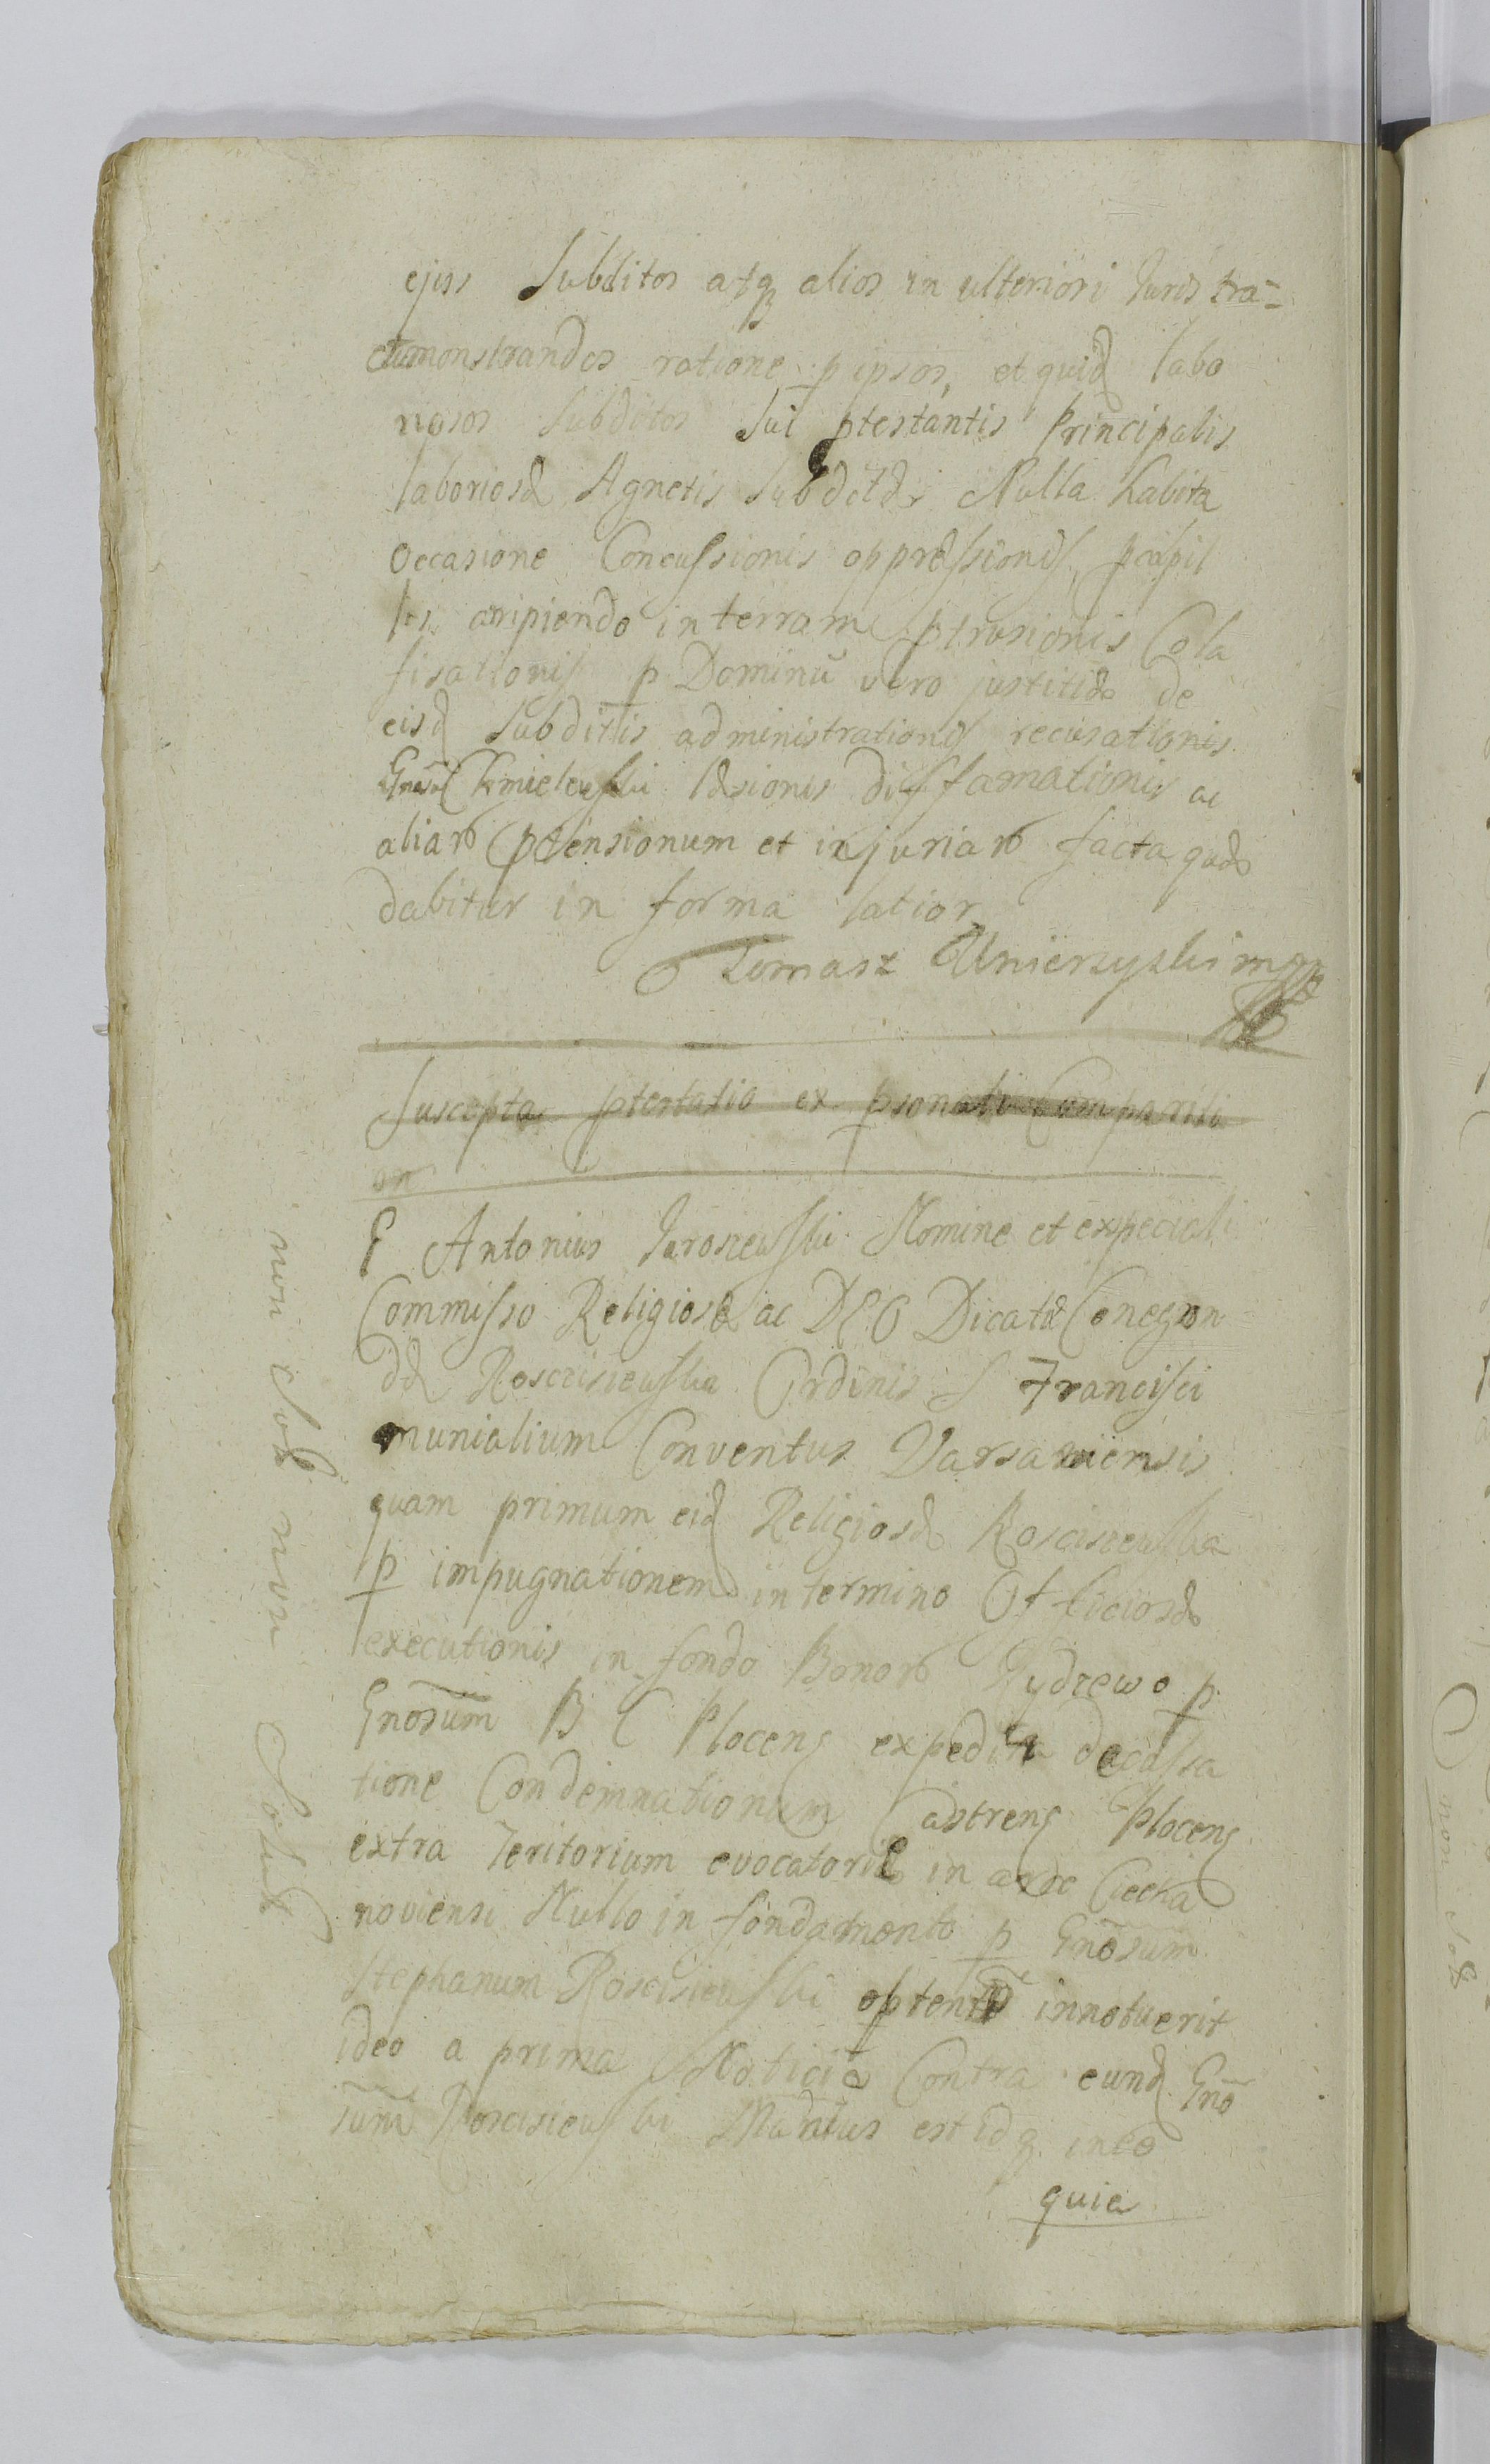 ejus Subditos atq alios in ulteriori Juris tra=
ctu monstrandos ratione p ipsos, et quid labo
riosos Subditos Sui ptestantis Principalis
laboriosæ Agnetis Subditæ Nulla habita
occasione Concussionis oppressionis, p capil
los arripiendo in terram ptrusionis Cola
fisationis p Dominũ vero justitiæ de
eisd Subditis administrationis recusationis
Chmielewski læsionis diffamationis ac
aliar ptensionum et injuriar facta quæ
dabitur in forma latior
Tomasz Unierzyski mpp
Suscepta ptestatio ex psonali Comparitio
on
G Antonius Jaroszewski Nomine et expeciali
Commisso Religiosæ ac DEO Dicatæ Conegun
dæ Rosciszewska Ordinis S Francisci
munialium Conventus Varsaviensis
quam primum eid Religiosæ Rosciszewska
p impugnationem in termino Officiosæ
executionis in fondo Bonor Gydzewo p
Gnosum B C Plocens expedita de cassa
tione Condemnationum Castrens Plocens
extra Teritorium evocatoriæ in arce Ciecha
noviensi Nullo in fondamento p Gnosum
Stephanum Rosciszewski optent innotuerit
ideo a prima Noticia Contra eund Gno
sum Rosciszewski Manifus est id q in eo
quia
non sol non Solut